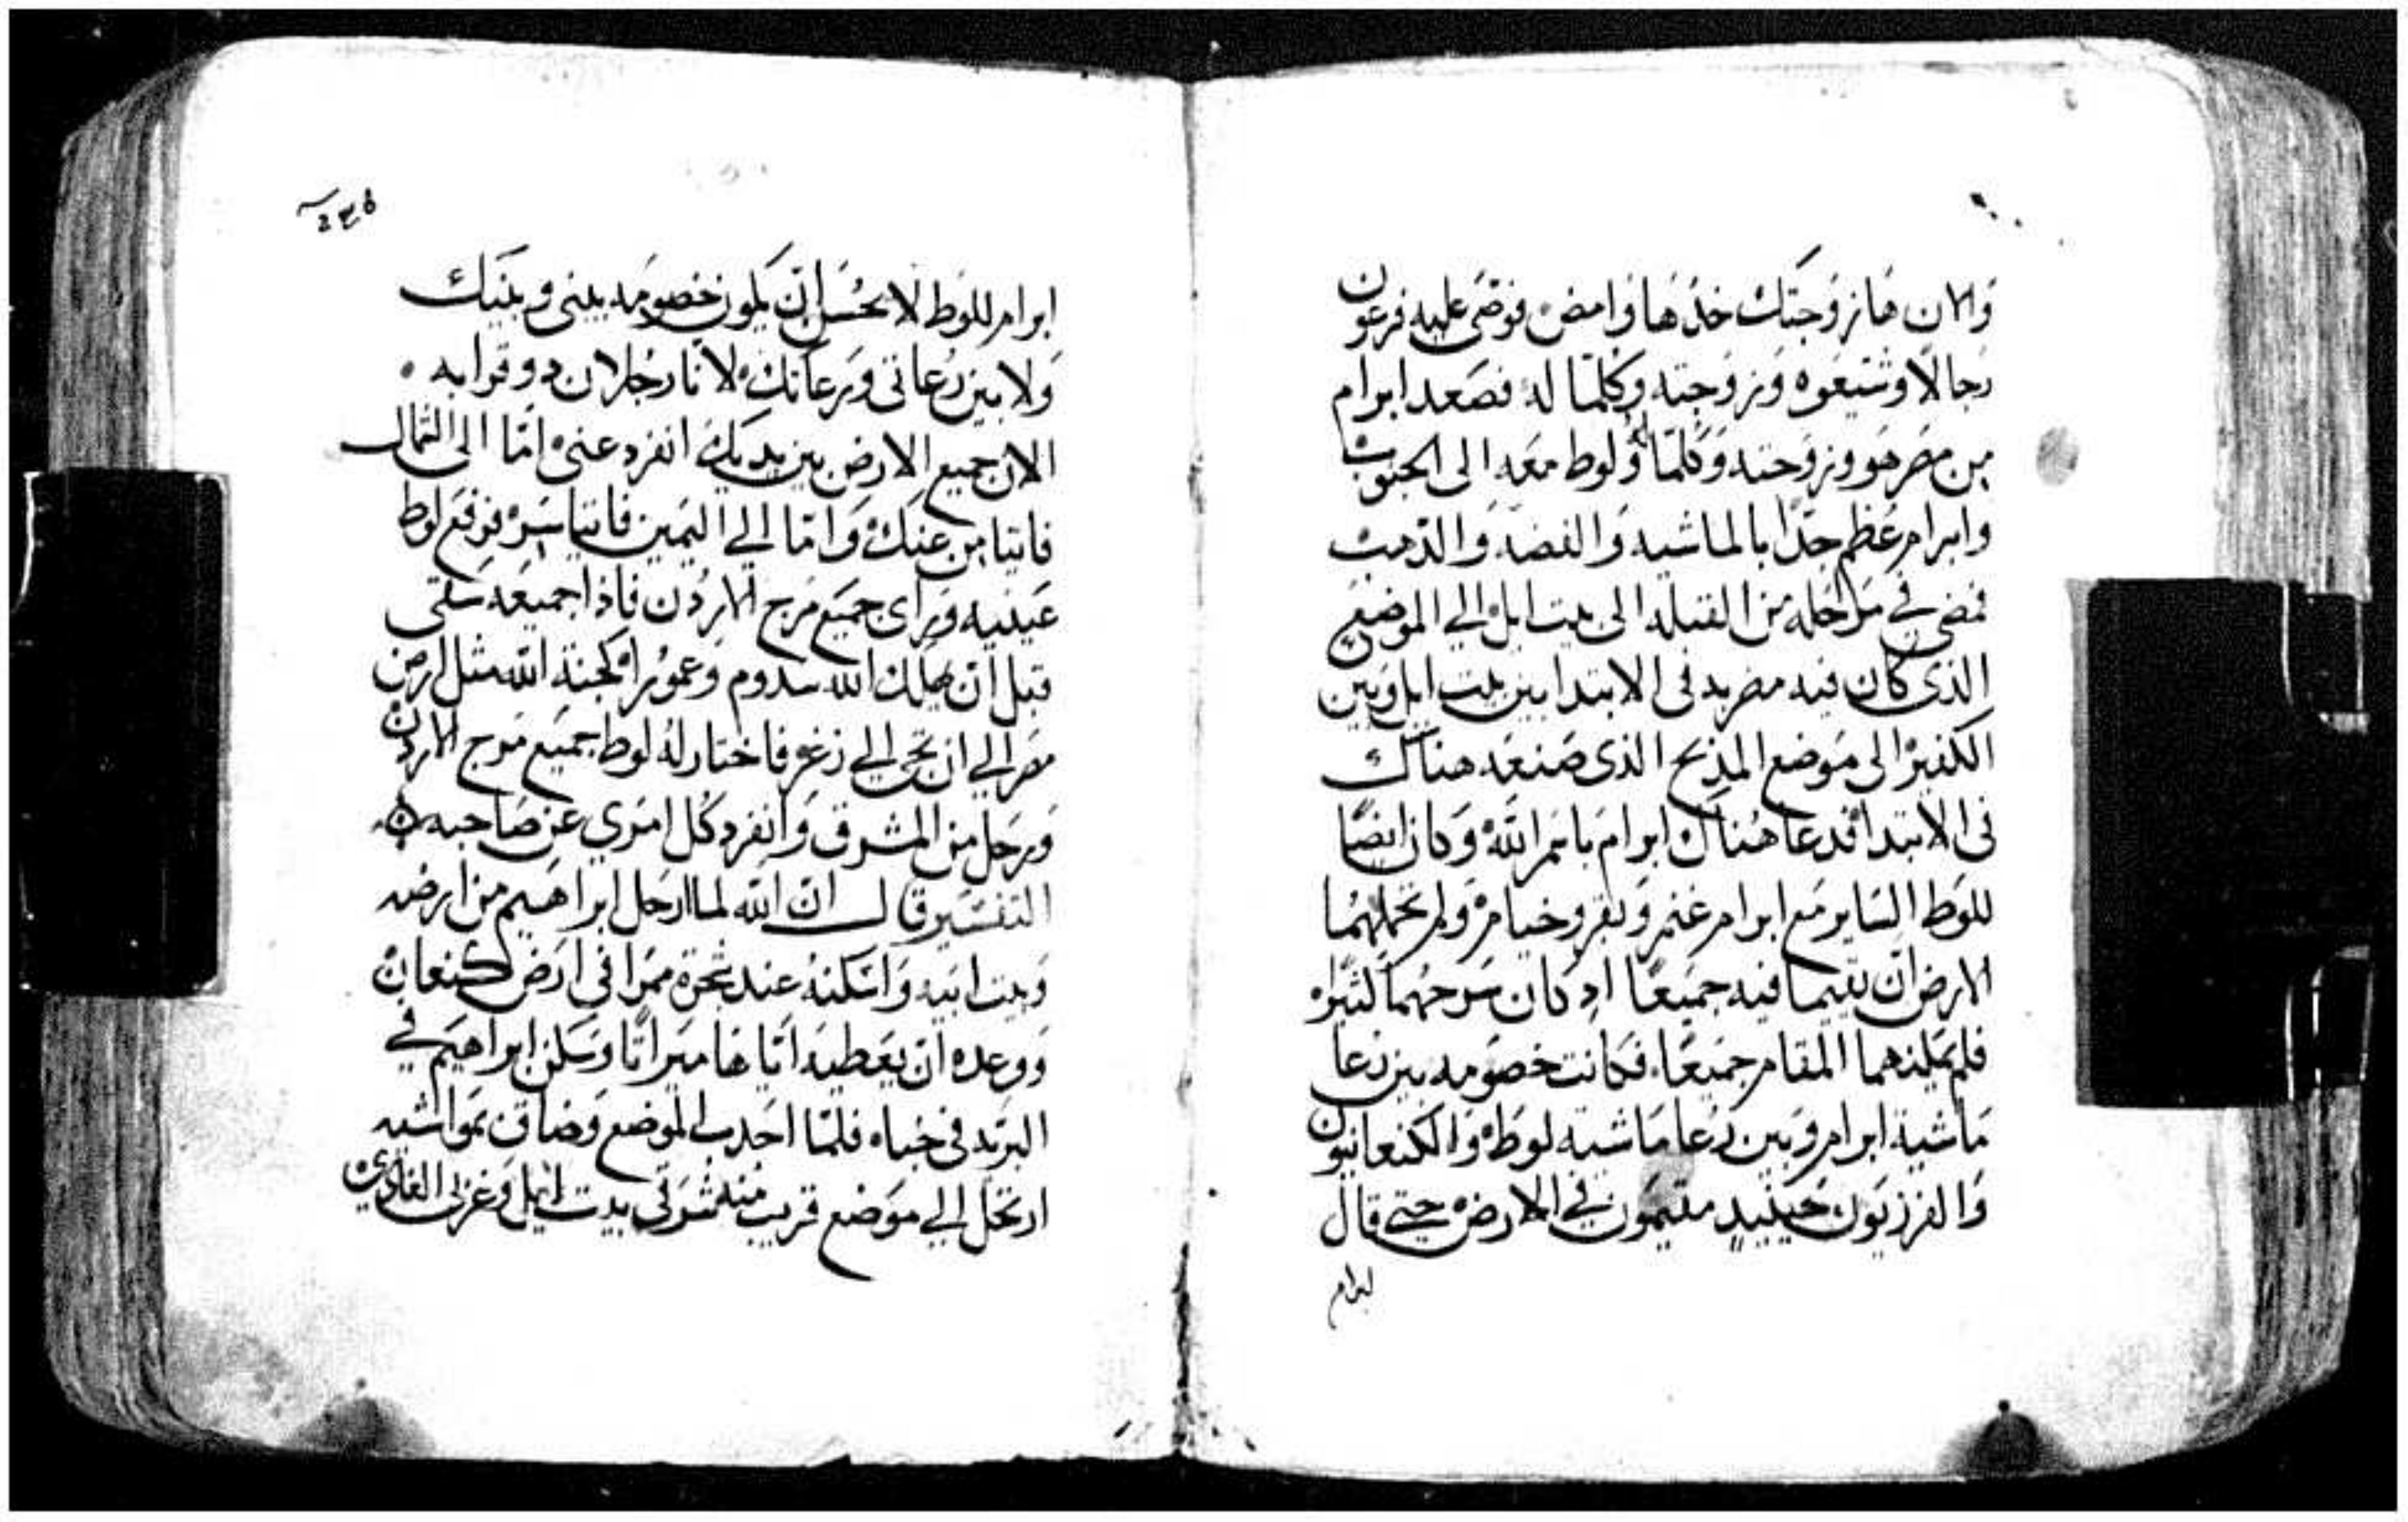 والان هَا زوجتك خذها وَامض فوصّى عليه فرعون
رجالًا وشيعوه وزوجته وكلّما له فصَعد ابرام
من مصر هوو زوجته وَكلمّا له وَلوط معَه الى الجنوب
وابرام عَظم جدًا بالماشيه وَالفضه وَالذهب
فمضى في مراحله من القبله الى بيت ايل الي الموضع
الذى كان فيه مضربه فى الابتدا بين بيت ايل وَبين
الكفير الى مَوضع المذبح الذى صَنعَه هناك
فى الابتدا فدعا هناك ابرام باسم الله وَكان ايضًا
للوَط السَاير مَع ابرام غنم وَبقر وخيام وَلم تحملهُما
الارض ان يقيما فيه جميعًا اد كان سَرحهُما كثيرًا
فلم يمكنهما المقام جميعًا فكانت خصَومه بين رعا
مَاشية ابرام وَبين رُعا مَاشية لوط وَالكنعانيون
وَالفرزيَون حينيد مقيمَون في الارض حتي قال
ابرام
ابرام للوَط لا يحُسَن ان يكون خصومَه بينى وبَينك
وَلا بين رُعاتى وَرعاتك لانا رجُلان دوو قرابه
الان جميع الارض بين يديك انفرد عنى امّا الى الشمال
فاتيامن عنك وَامّا الي اليَمين فاتياسَر فرفع لوط
عَينيه وَراى جميَع مَرج الاردن فاذا جميعَه سَقى
قبل ان يهلك الله سدوم وَعمورُا كجنة الله مثل ارض
مصر الي ان تجى الي زغر فاختار لهُ لوط جميَع مَرج الاردن
وَرحَل من المشرق وَانفرد كل امَري عن صَاحبه
التفسَير قال ان الله لما ارحَل ابراهيم من ارضه
وَبيت ابيه وَاسَكنهُ عند شجرة ممَرا فى ارَض كنعان
وَوعده ان يعَطيه اياها ميراثا وَسَكن ابراهيَم في
البريه فى خباه فلمّا اجدب الموضع وَضاق بمَواشيه
ارتحل الي موَضع قريب منه شرقى بيت ايل وَغربى